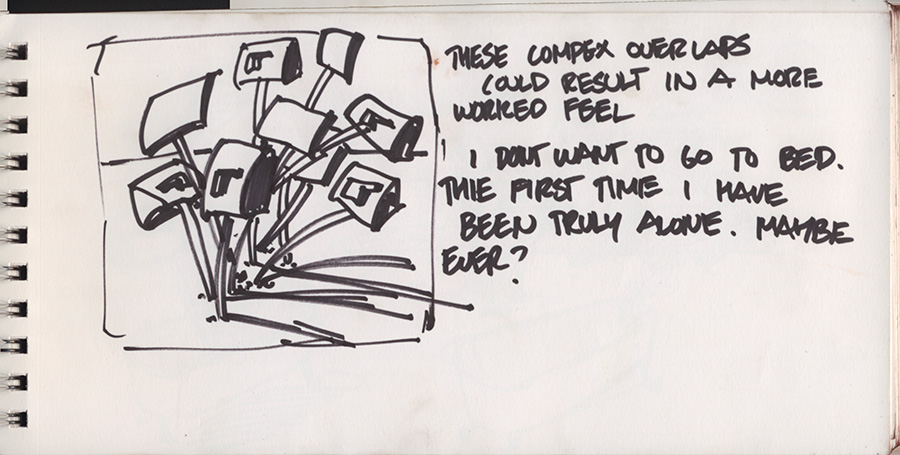 THESE COMPEX OVERLAPS
COULD RESULT IN A MORE
WORKED FEEL
I DONT WANT TO GO TO BED.
THIE FIRST TIME I HAVE
BEEN TRULY ALONE. MAYBE
EVER?